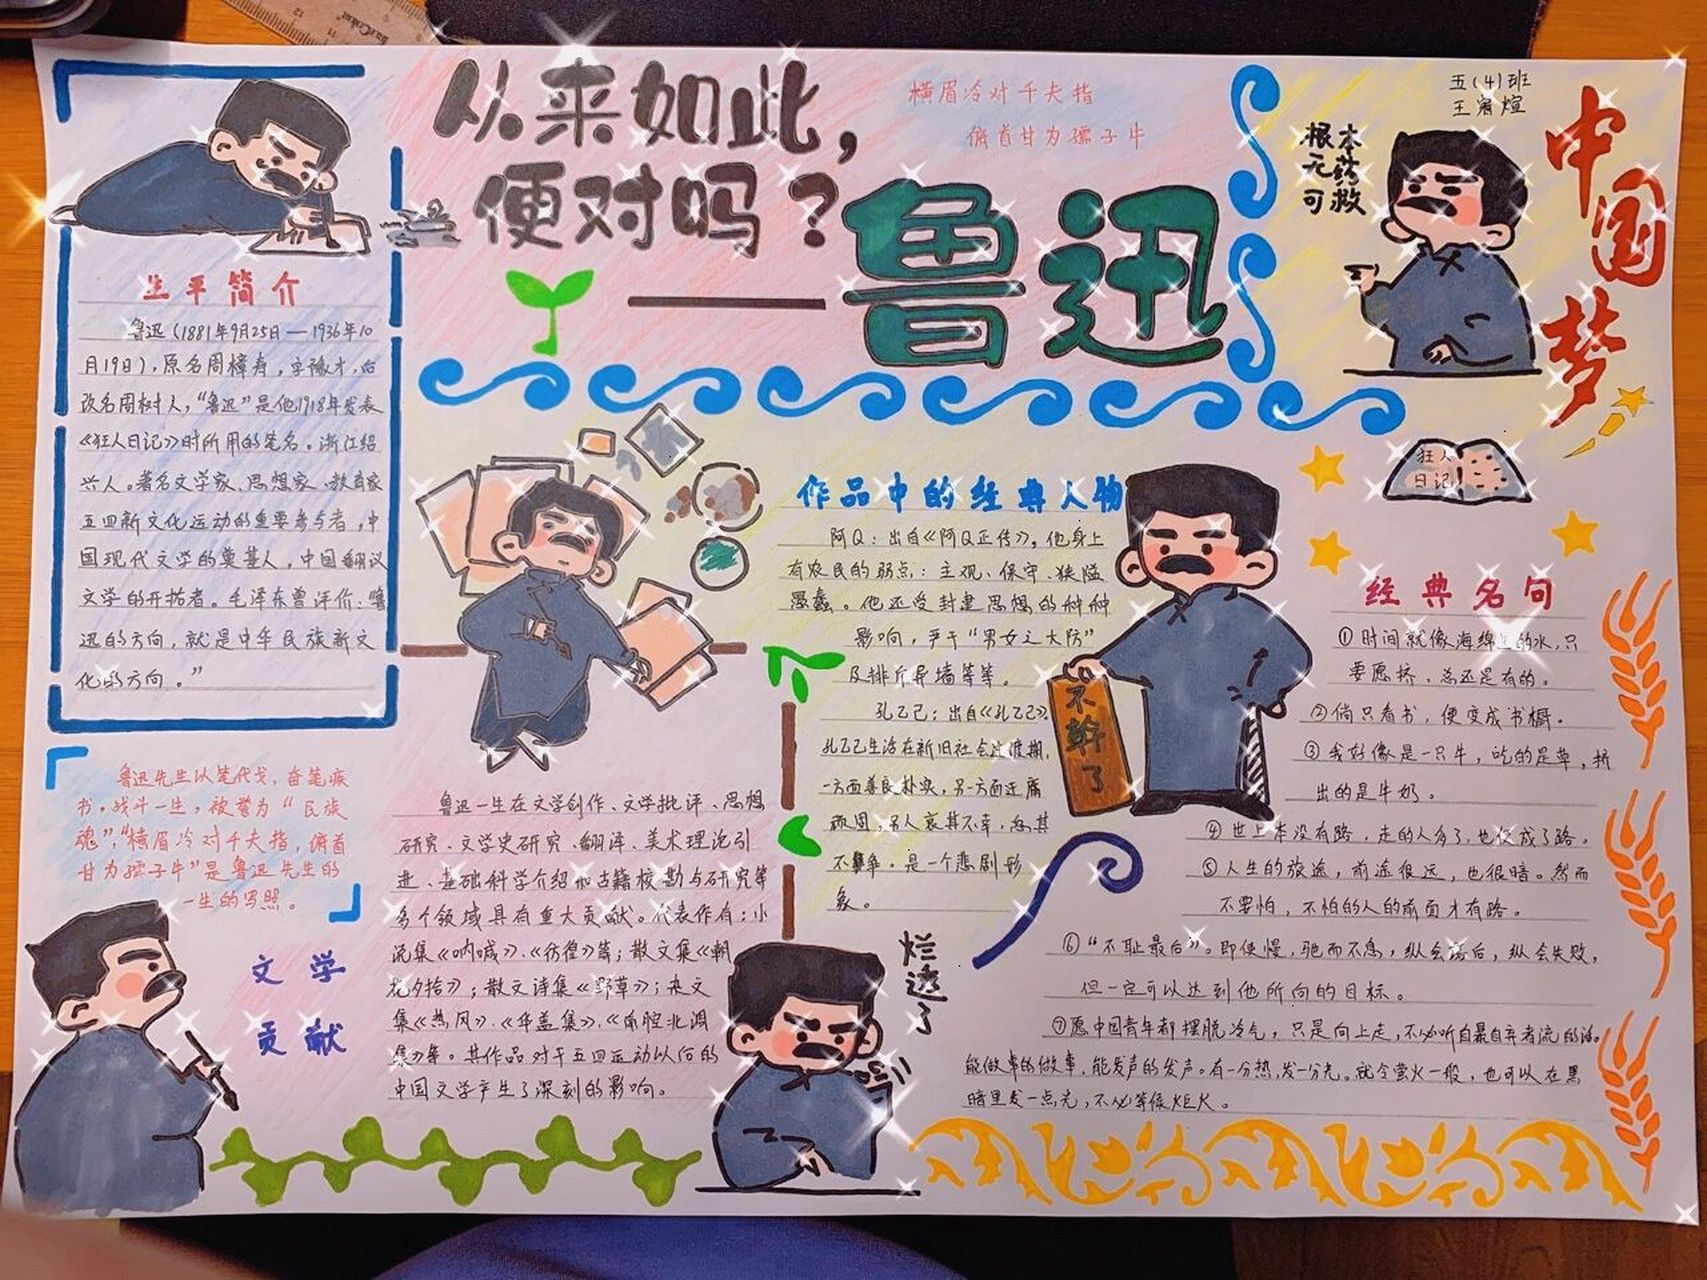 从来如此，
便对吗？
——鲁迅
横眉冷对千夫指
俯首甘为孺子牛
五(4)班
根本
无药
可救
中国梦
生平简介
鲁迅（1881年9月25日—1936年10
月19日），原名周樟寿，字豫才，后
改名周树人，“鲁迅”是他1918年发表
《狂人日记》时所用的笔名。浙江绍
兴人。著名文学家、思想家、教育家
五四新文化运动的重要参与者，中
国现代文学的奠基人，中国翻议
文学的开拓者。毛泽东曾评价：“鲁
迅的方向，就是中华民族新文
化的方向。”
鲁迅先生以笔代戈，奋笔疾
书，战斗一生，被誉为“民族
魂”，“横眉冷对千夫指，俯首
甘为孺子牛”是鲁迅先生的
一生的写照。
文学
贡献
鲁迅一生在文学创作、文学批评、思想
研究、文学史研究、翻译、美术理论引
进、基础科学介绍和古籍校勘与研究等
多个领域具有重大贡献。代表作有：小
说集《呐喊》、《彷徨》等；散文集《朝
花夕拾》；散文诗集《野草》；杂文
集《热风》、《华盖集》、《南腔北调
集》等。其作品对于五四运动以后的
中国文学产生了深刻的影响。
作品中的经典人物
阿Q：出自《阿Q正传》。他身上
有农民的弱点：主观、保守、狭隘
愚蠢。他还受封建思想的种种
影响，严于“男女之大防”
及排斥异端等等。
孔乙己：出自《孔乙己》。
孔乙己生活在新旧社会过渡期，
一方面善良朴实，另一方面迂腐
顽固，另人哀其不幸，怒其
不争。是一个悲剧形
象。
不幹了
烂透了
狂人
日记
经典名句
①时间就像海绵里的水，只
要愿挤，总还是有的。
②倘只看书，便变成书橱。
③我好像是一只牛，吃的是草，挤
出的是牛奶。
④世上本没有路，走的人多了，也便成了路。
⑤人生的旅途，前途很远，也很暗。然而
不要怕，不怕的人的前面才有路。
⑥“不耻最后”。即使慢，驰而不息，纵会落后，纵会失败，
但一定可以达到他所向的目标。
⑦愿中国青年都摆脱冷气，只是向上走，不必听自暴自弃者流的话。
能做事的做事，能发声的发声。有一分热，发一分光。就令萤火一般，也可以在黑
暗里发一点光，不必等候炬火。